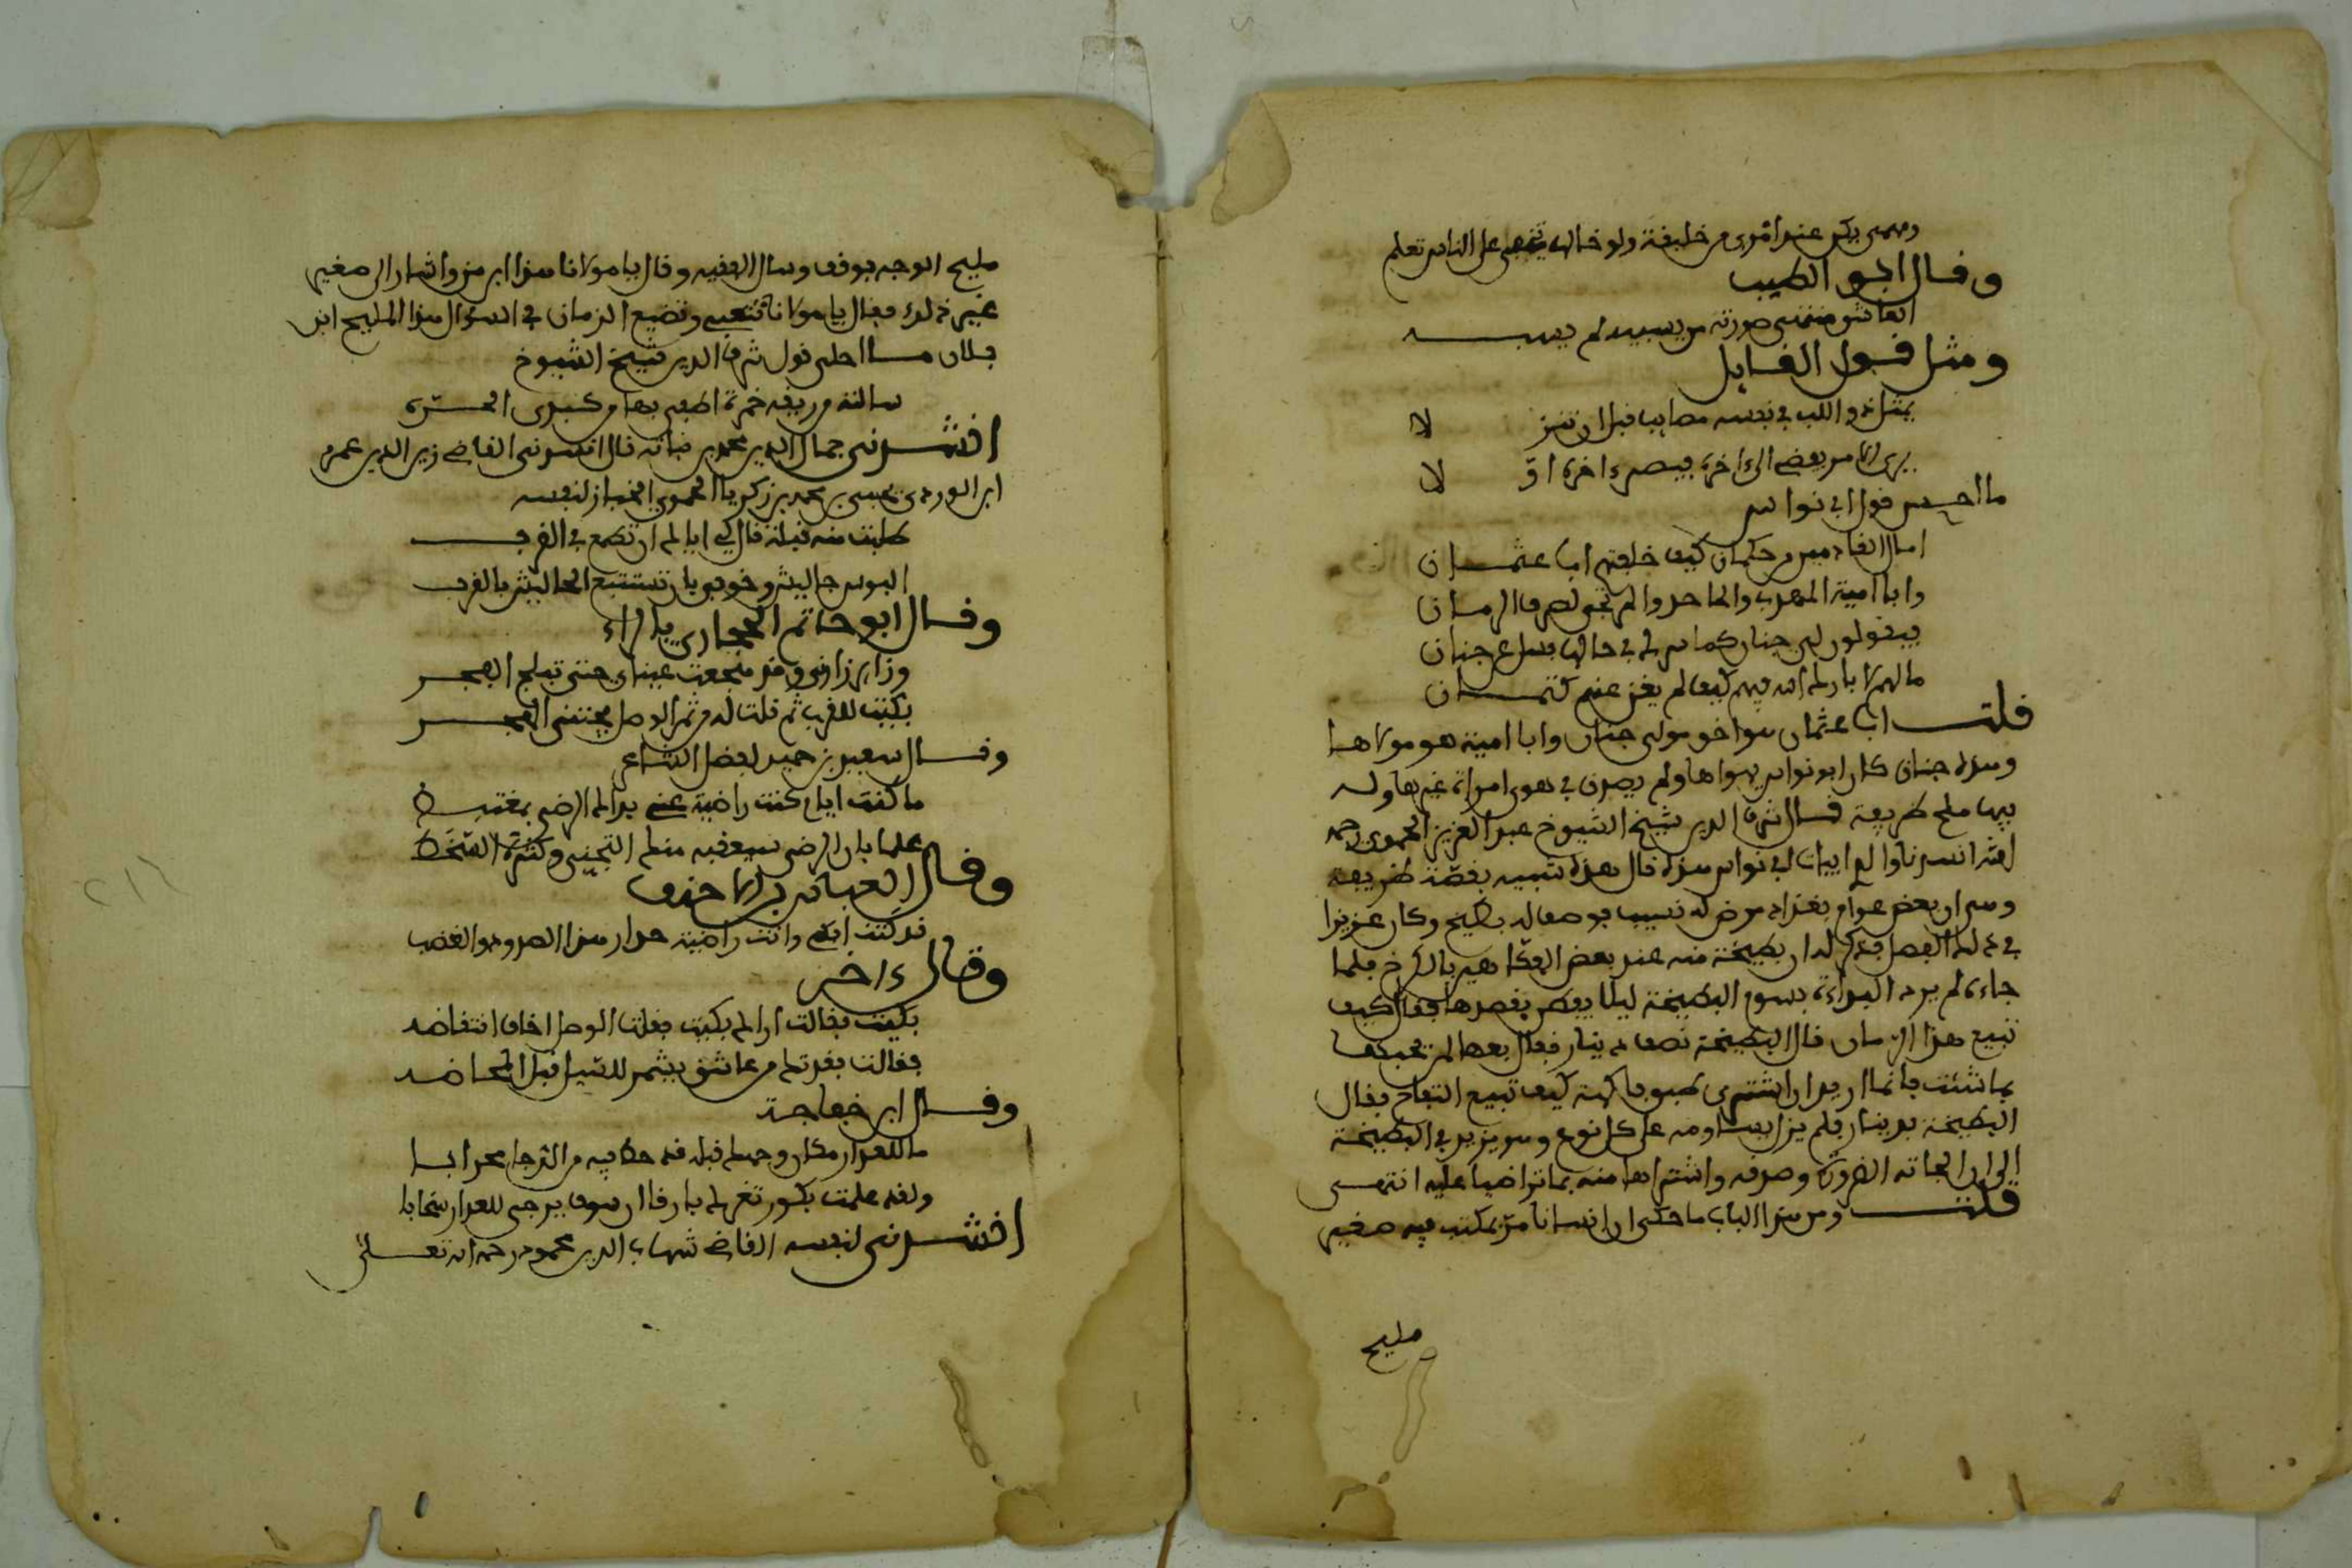 ومهمى يكن عند امرئ من خليقة ولو خالها تخفى على الناس تعلم
وقال ابو الطيب
ومثل قول القايل
يمثل ذو اللب في نفسه مصايب قبل ان تنز لا
يرى الامر يفضي الى اخره فيصير ءاخره او لا
ما احسن قول ابي نواس
اسال القادمين من حكمان كيف خلفتم ابا عثمان
وابا امية المهذب والماجد والمرتجى لصرف الزمان
فيقولون لي جنان كما سرك في حالها فسل عن جنان
ما لهم لا يبارك الله فيهم كيف لم يغن عنهم كتمان
قلت ابا عثمان هو اخو مولى جنان وابا امية هو مولاها
وهذه جنان كان ابو نواس يهواها ولم يصدق في هوى امراة غيرها وله
فيها ملح ظريفة قال شرف الدين شيخ الشيوخ عبد العزيز الحموي رحمه
الله انشدنا والدي ابيات ابي نواس هذه قال هذه شبيه بقصة ظريفة
وهي ان بعض عوام بغداد مرض له نسيب فوصف له بطيخ وكان عزيزا
في ذلك الفصل فذكر له ان بطيخة منه عند بعض الفكاهين بالكرخ فلما
جاءه لم يرد البداءة بسوم البطيخة ليلا يفطن بقصدها فقال كيف
تبيع هذا الرمان قال البطيخة نصف دينار فقال بعها لمن تحبها
بما شئت فانما اريد ان اشتري طبق فاكهة كيف تبيع التفاح فقال
البطيخة بدينار فلم يزل يساومه على كل نوع وهو يزيد في البطيخة
الى ان الجاته الضرورة وصرفه واشتراها منه بما تراضيا عليه انتهى
قلت ومن هذا الباب ما حكي ان انسانا مر بمكتب فيه صغير
مليح
مليح الوجه فوقف وسال الفقيه وقال يا مولانا هذا ابن من واشار الى صغير
غير ذلك فقال يا مولانا تتعب وتضيع الزمان في السؤال هذا المليح ابن
فلان ما احلى قول شرف الدين شيخ الشيوخ
سالته من ريقه خمرة اطفي بها من كبدي الحره
انشدني جمال الدين محمد بن نباته قال انشدني القاضي زين الدين عمر
ابن الوردي عيسى بن محمد بن زكريا الحموي الخباز لنفسه
طلبت منه قبلة قال لي اياك ان تطمع في القرب
البوس جاليش وخوفي بان تستتبع الجاليش بالقرب
وقال ابو حاتم الحجاري بالراء
وزاير زارني وقد هجعت عيناي حتى تبلج الفجر
بكيت للقرب ثم قلت له من ثمر الوصل يجتنى الهجر
وقال سعيد بن حميد لفضل الشاعر
ما كنت ايام كنت راضية عني بذاك الرضى بمغتبط
علما بان الرضى سيعقبه منك التجني وكثرة السخط
وقال العباس بن الاحنف
قد كنت ابكي وانت راضية حذار هذا الصدود والغضب
وقال ءاخر
بكيت فقالت ان رالم بكيت فقلت الوصل اخاف انتقاضه
فقالت بفديتك من عاشق يشمر للسيل قبل المخاضه
وقال ابن خفاجة
ما للعذار وكان وجهك قبله قد خط فيه من الدجا محرابا
ولقد علمت بكون ثغرك بارقا ان سوف يرجى للعذار سحابا
انشدني لنفسه القاضي شهاب الدين محمود رحمه الله تعالى